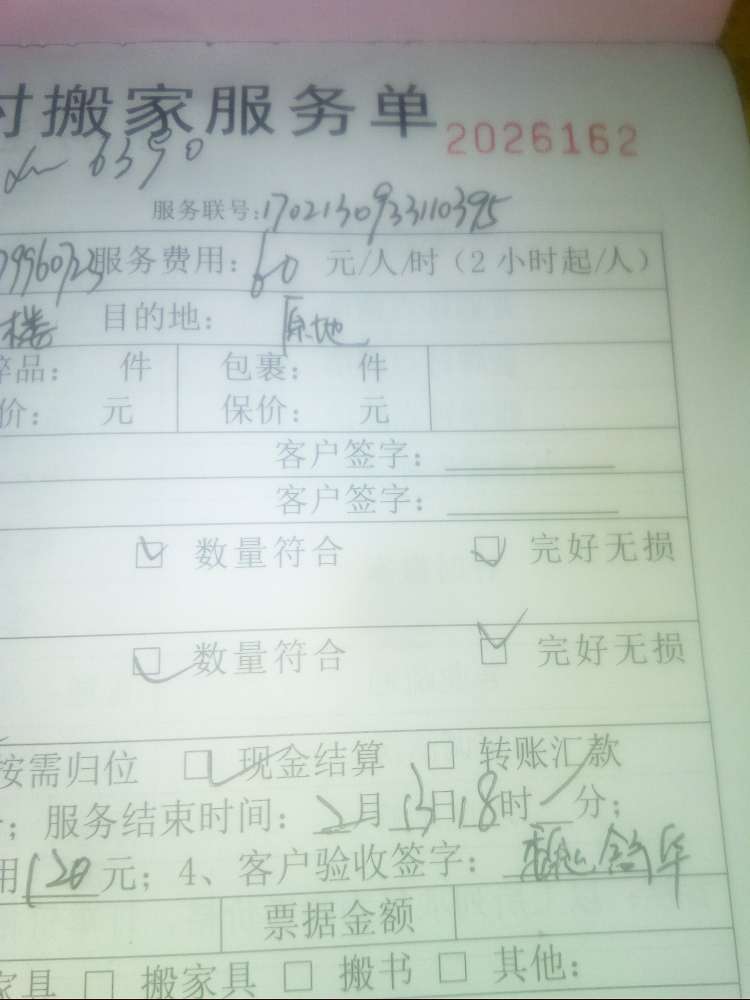 时搬家服务单 2026162
6390
服务联号:170213093310395
服务费用: 60 元/人/时（2小时起/人）
楼 目的地: 原地
碎品: 件 包裹: 件
价: 元 保价: 元
客户签字:
客户签字:
数量符合 完好无损
数量符合 完好无损
按需归位 现金结算 转账汇款
服务结束时间: 2月13日18时 分;
用120元; 4、客户验收签字:
票据金额
家具 搬家具 搬书 其他: